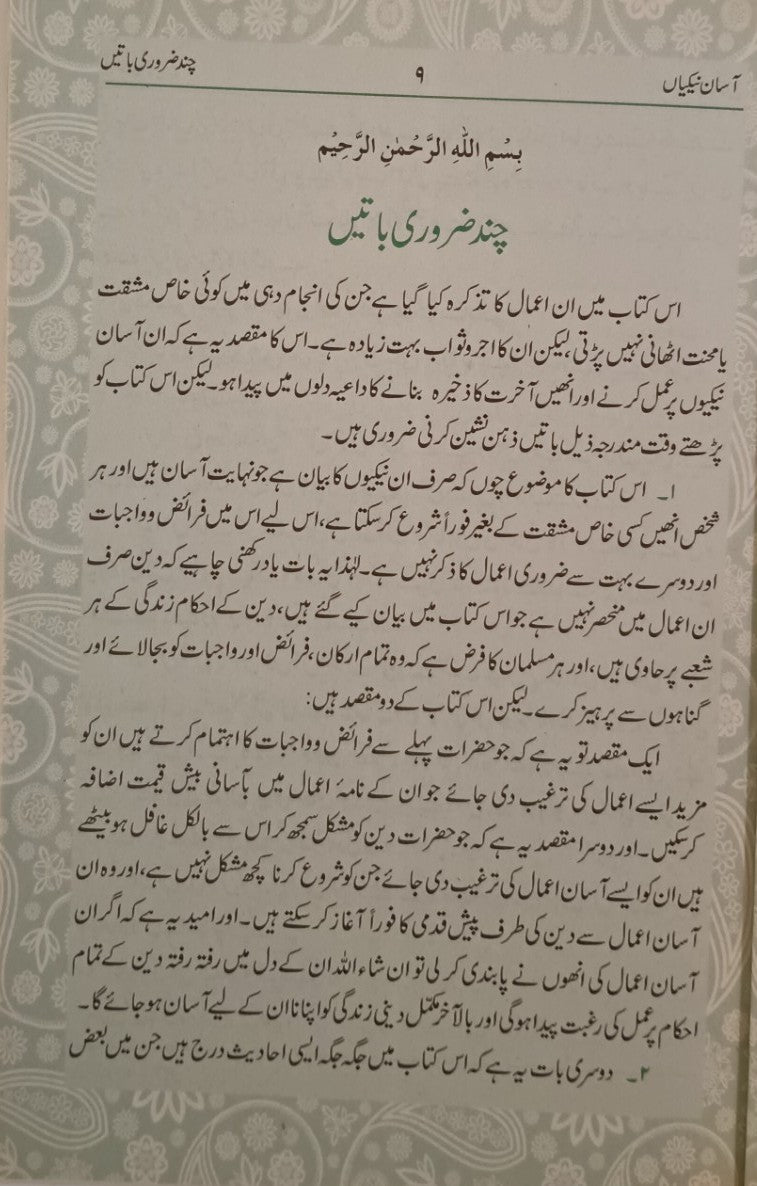 آسان نیکیاں ۹ چند ضروری باتیں
بِسْمِ اللهِ الرَّحْمٰنِ الرَّحِيْمِ
چند ضروری باتیں
اس کتاب میں ان اعمال کا تذکرہ کیا گیا ہے جن کی انجام دہی میں کوئی خاص مشقت
یا محنت اٹھانی نہیں پڑتی، لیکن ان کا اجر و ثواب بہت زیادہ ہے۔ اس کا مقصد یہ ہے کہ ان آسان
نیکیوں پر عمل کرنے اور انھیں آخرت کا ذخیرہ بنانے کا داعیہ دلوں میں پیدا ہو۔ لیکن اس کتاب کو
پڑھتے وقت مندرجہ ذیل باتیں ذہن نشین کرنی ضروری ہیں۔
۱۔ اس کتاب کا موضوع چوں کہ صرف ان نیکیوں کا بیان ہے جو نہایت آسان ہیں اور ہر
شخص انھیں کسی خاص مشقت کے بغیر فوراً شروع کر سکتا ہے، اس لیے اس میں فرائض و واجبات
اور دوسرے بہت سے ضروری اعمال کا ذکر نہیں ہے۔ لہٰذا یہ بات یاد رکھنی چاہیے کہ دین صرف
ان اعمال میں منحصر نہیں ہے جو اس کتاب میں بیان کیے گئے ہیں، دین کے احکام زندگی کے ہر
شعبے پر حاوی ہیں، اور ہر مسلمان کا فرض ہے کہ وہ تمام ارکان، فرائض اور واجبات کو بجا لائے اور
گناہوں سے پرہیز کرے۔ لیکن اس کتاب کے دو مقصد ہیں:
ایک مقصد تو یہ ہے کہ جو حضرات پہلے سے فرائض و واجبات کا اہتمام کرتے ہیں ان کو
مزید ایسے اعمال کی ترغیب دی جائے جو ان کے نامۂ اعمال میں بآسانی بیش قیمت اضافہ
کر سکیں۔ اور دوسرا مقصد یہ ہے کہ جو حضرات دین کو مشکل سمجھ کر اس سے بالکل غافل ہو بیٹھے
ہیں ان کو ایسے آسان اعمال کی ترغیب دی جائے جن کو شروع کرنا کچھ مشکل نہیں ہے، اور وہ ان
آسان اعمال سے دین کی طرف پیش قدمی کا فوراً آغاز کر سکتے ہیں۔ اور امید یہ ہے کہ اگر ان
آسان اعمال کی انھوں نے پابندی کر لی تو ان شاء اللہ ان کے دل میں رفتہ رفتہ دین کے تمام
احکام پر عمل کی رغبت پیدا ہوگی اور بالآخر مکمّل دینی زندگی کو اپنانا ان کے لیے آسان ہو جائے گا۔
۲۔ دوسری بات یہ ہے کہ اس کتاب میں جگہ جگہ ایسی احادیث درج ہیں جن میں بعض